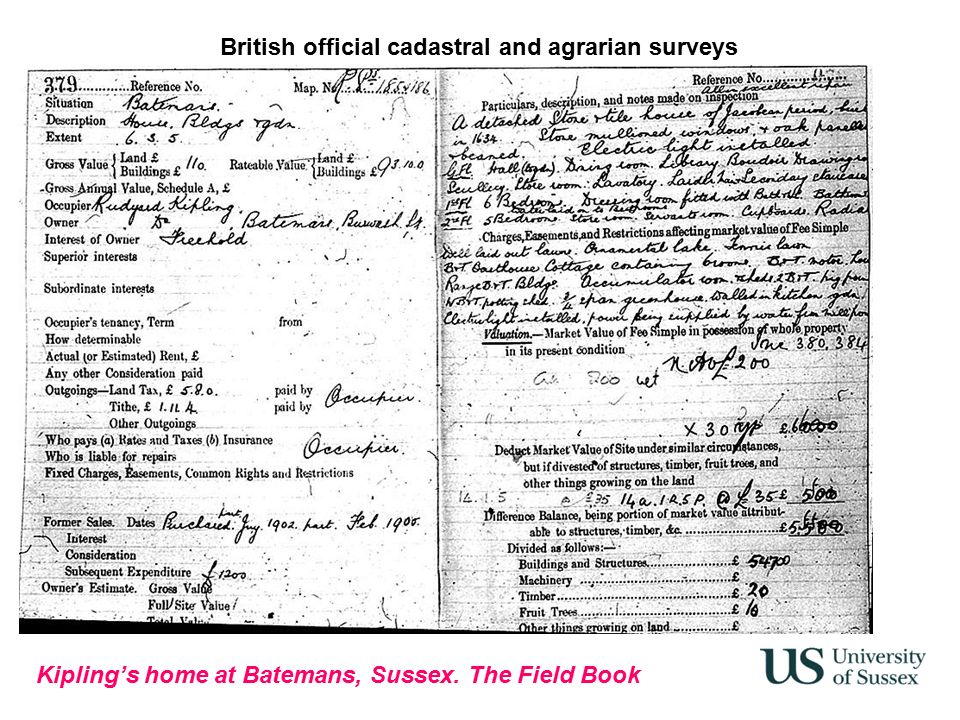 British official cadastral and agrarian surveys
379 Reference No. Map. No
Situation Batemans.
Description House, Bldgs & gdn.
Extent 6. 3. 5
Gross Value { Land £ Buildings £ 110. Rateable Value { Land £ Buildings £ 93.10.0
Gross Annual Value, Schedule A, £
Occupier Rudyard Kipling
Owner Do Batemans, Burwash, St.
Interest of Owner Freehold
Superior interests
Subordinate interests
Occupier's tenancy, Term from
How determinable
Actual (or Estimated) Rent, £
Any other Consideration paid
Outgoings—Land Tax, £ 5.8.0. paid by Occupier.
Tithe, £ 1.11.4 paid by
Other Outgoings
Who pays (a) Rates and Taxes (b) Insurance Occupier.
Who is liable for repairs
Fixed Charges, Easements, Common Rights and Restrictions
Former Sales. Dates Purchased part 1902. part. Feb.
Interest
Consideration
Subsequent Expenditure £1200
Owner's Estimate. Gross Value
Full Site Value
Total Value
Reference No.
All in excellent repair
Particulars, description, and notes made on inspection
A detached Stone & tile house of Jacobean period, built
in 1634. Stone mullioned windows & oak panelled
& beamed. Electric light installed
G.Fl. Hall Dining room. Library Boudoir Drawing
Scullery. Store room. Lavatory. Larder Secondary staircase
1st Fl 6 Bedrooms. Dressing room fitted with Bath
2nd Fl 5 Bedrooms Store room Servants room. Cupboards.
Charges, Easements, and Restrictions affecting market value of Fee Simple
Well laid out lawns. Ornamental lake. Tennis lawn
B&T Oasthouse Cottage containing B&T motor
Range B&T Bldgs. Accumulator room. B&T pig
potting shed. 3/4 span greenhouse. Walled in kitchen gdn.
Electric light installed, power being supplied by water from mill pond
Valuation.—Market Value of Fee Simple in possession of whole property
in its present condition 380. 384
£200
200 net
X 30 yp £6000
Deduct Market Value of Site under similar circumstances,
but if divested of structures, timber, fruit trees, and
other things growing on the land
14.1.5 @ £35 14a. 1R.5P. @ £35 £ 500
Difference Balance, being portion of market value attribut-
able to structures, timber, &c. £5,500
Divided as follows:—
Buildings and Structures £
Machinery £
Timber £ 20
Fruit Trees £ 10
Other things growing on land £
Kipling's home at Batemans, Sussex. The Field Book
US University
of Sussex